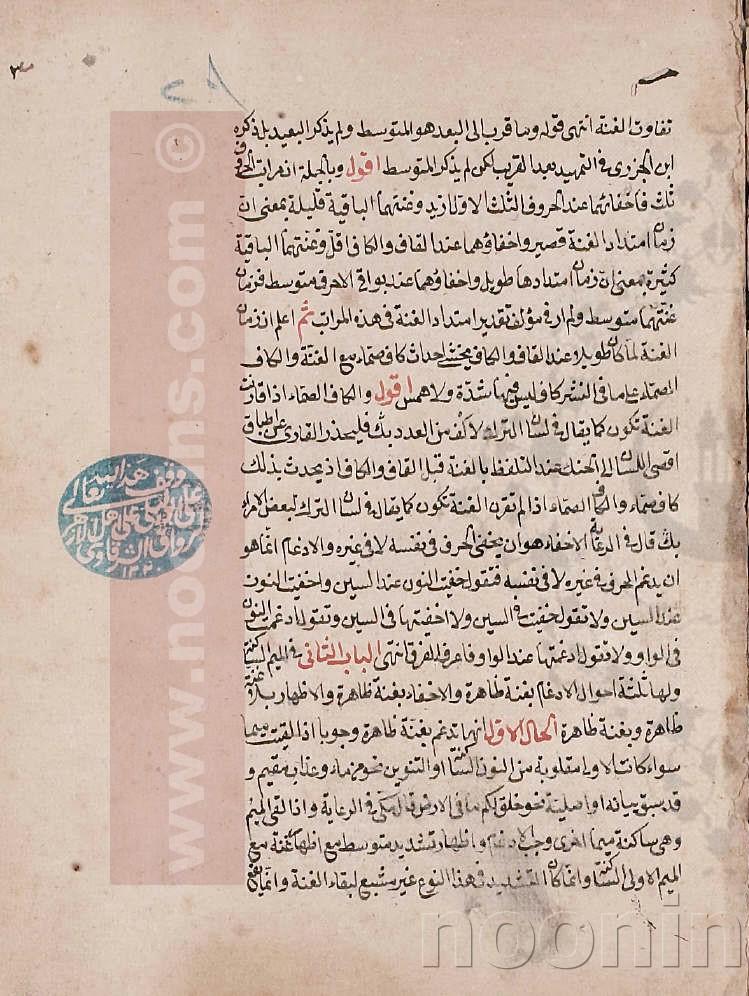 تفاوت الغنة انتهى قوله وما قرب الى البعد هو المتوسط ولم يذكر البعيد بل ذكره
ابن الجزرى في التمهيد بعد القريب لكن لم يذكر المتوسط اقول وبالجملة ان مراتب
ثلث فاخفاؤهما عند الحروف الثلث الاول ازيد وغنتهما الباقية قليلة بمعنى ان
زمان امتداد الغنة قصير واخفاؤهما عند القاف والكاف اقل وغنتهما الباقية
كثيرة بمعنى ان زمان امتدادها طويل واخفاؤهما عند بواقي الاحرف متوسط فزمان
غنتهما متوسط ولم ار في مؤلف تقدير امتداد الغنة في هذه المراتب ثم اعلم ان زمان
الغنة لما كان طويلا عند القاف والكاف يخشى احداث كاف صماء مع الغنة والكاف
الصماء على ما في النشر كاف ليس فيها شدة ولا همس اقول والكاف الصماء اذا قارنت
الغنة تكون كما يقال في لسان الترك لالف من العدد بك فليحذر القارى عن اطباق
اقصى اللسان الى الحنك عند التلفظ بالغنة قبل القاف والكاف اذ يحدث بذلك
كاف صماء والكاف الصماء اذا لم تقرن الغنة تكون كما يقال في لسان الترك لبعض الامراء
بك قال في الرعاية الاخفاء هو ان يخفى الحرف في نفسه لا في غيره والادغام انما هو
ان يدغم الحرف في غيره لا في نفسه فتقول خفيت النون عند السين واخفيت النون
عند السين ولا تقول خفيت في السين ولا اخفيتها في السين وتقول ادغمت النون
في الواو ولا تقول ادغمتها عند الواو فاعرف الفرق انتهى الباب الثانى في الميم الساكنة
ولها ثلثة احوال الادغام بغنة ظاهرة والاخفاء بغنة ظاهرة والاظهار بلا غنة
ظاهرة وبغنة ظاهرة الحال الاول انها تدغم بغنة ظاهرة وجوبا اذا لقيت ميما
سواء كانت الاولى مقلوبة من النون الساكنة او التنوين نحو من ماء وعذاب مقيم و
قد سبق بيانه او اصلية نحو خلق لكم ما في الارض قال مكى في الرعاية واذا لقى الميم
وهى ساكنة ميما اخرى وجب الادغام واظهار تشديد متوسط مع اظهار غنة مع
الميم الاولى الساكنة وانما كان التشديد في هذا النوع غير مشبع لبقاء الغنة وانما
وقف هذا لله تعالى
www.noonins.com ©
noonin